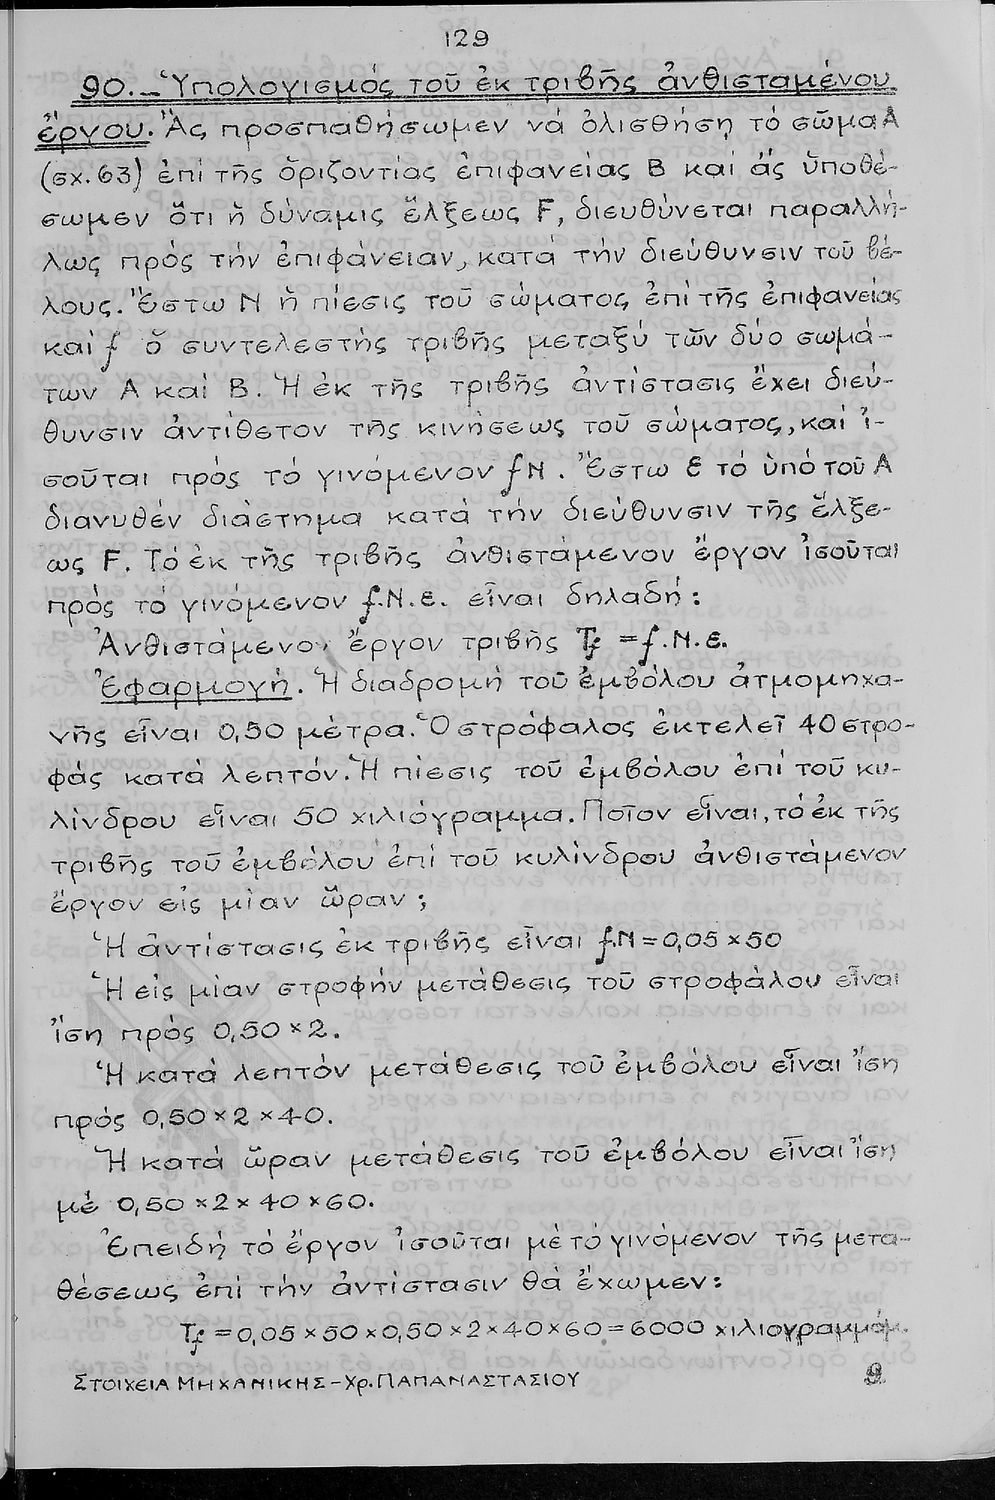 129
90.- Ὑπολογισμός τοῦ ἐκ τριβῆς ἀνθισταμένου
ἔργου. Ἄς προσπαθήσωμεν νά ὀλισθήσῃ τό σῶμα Α
(σχ. 63) ἐπί τῆς ὁριζοντίας ἐπιφανείας Β καί ἄς ὑποθέ-
σωμεν ὅτι ἡ δύναμις ἕλξεως F, διευθύνεται παραλλή-
λως πρός τήν ἐπιφάνειαν, κατά τήν διεύθυνσιν τοῦ βέ-
λους. Ἔστω Ν ἡ πίεσις τοῦ σώματος ἐπί τῆς ἐπιφανείας
καί f ὁ συντελεστής τριβῆς μεταξύ τῶν δύο σωμά-
των Α καί Β. Ἡ ἐκ τῆς τριβῆς ἀντίστασις ἔχει διεύ-
θυνσιν ἀντίθετον τῆς κινήσεως τοῦ σώματος, καί ἰ-
σοῦται πρός τό γινόμενον fN. Ἔστω ε τό ὑπό τοῦ Α
διανυθέν διάστημα κατά τήν διεύθυνσιν τῆς ἕλξε-
ως F. Τό ἐκ τῆς τριβῆς ἀνθιστάμενον ἔργον ἰσοῦται
πρός τό γινόμενον f.N.ε. εἶναι δηλαδή:
Ἀνθιστάμενον ἔργον τριβῆς Tf = f.N.ε.
Ἐφαρμογή. Ἡ διαδρομή τοῦ ἐμβόλου ἀτμομηχα-
νῆς εἶναι 0,50 μέτρα. Ὁ στρόφαλος ἐκτελεῖ 40 στρο-
φάς κατά λεπτόν. Ἡ πίεσις τοῦ ἐμβόλου ἐπί τοῦ κυ-
λίνδρου εἶναι 50 χιλιόγραμμα. Ποῖον εἶναι, τό ἐκ τῆς
τριβῆς τοῦ ἐμβόλου ἐπί τοῦ κυλίνδρου ἀνθιστάμενον
ἔργον εἰς μίαν ὥραν;
Ἡ ἀντίστασις ἐκ τριβῆς εἶναι f.N = 0,05 × 50
Ἡ εἰς μίαν στροφήν μετάθεσις τοῦ στροφάλου εἶναι
ἴση πρός 0,50 × 2.
Ἡ κατά λεπτόν μετάθεσις τοῦ ἐμβόλου εἶναι ἴση
πρός 0,50 × 2 × 40.
Ἡ κατά ὥραν μετάθεσις τοῦ ἐμβόλου εἶναι ἴση
μέ 0,50 × 2 × 40 × 60.
Ἐπειδή τό ἔργον ἰσοῦται μέ τό γινόμενον τῆς μετα-
θέσεως ἐπί τήν ἀντίστασιν θά ἔχωμεν:
Tf = 0,05 × 50 × 0,50 × 2 × 40 × 60 = 6000 χιλιογραμμόμ.
ΣΤΟΙΧΕΙΑ ΜΗΧΑΝΙΚΗΣ - Χρ. ΠΑΠΑΝΑΣΤΑΣΙΟΥ 9